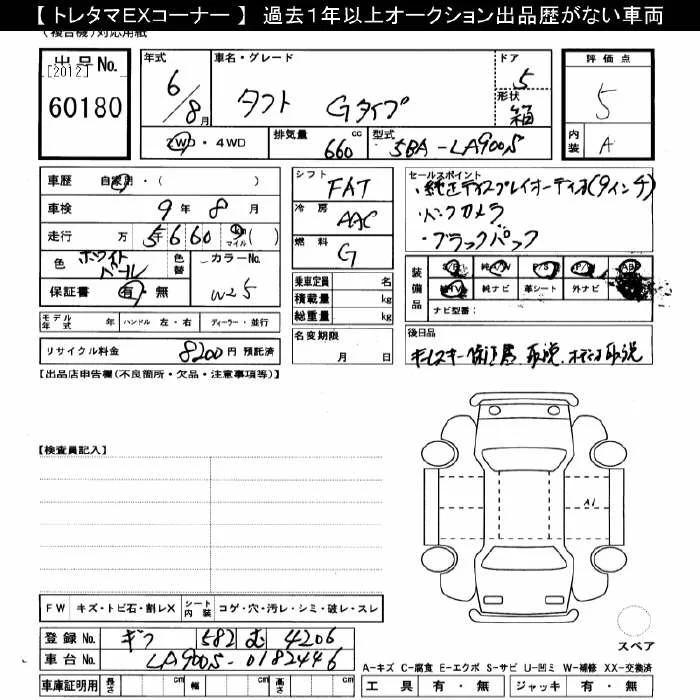 【 トレタマEXコーナー 】 過去1年以上オークション出品歴がない車両
(複合機)対応用紙
出品No.
[2012]
60180
年式 6/8月
車名・グレード タフト Gタイプ
ドア 5
形状 箱
評価点 5
内装 A
2WD・4WD
排気量 660 cc
型式 5BA-LA900S
車歴 自家用・( )
車検 9年8月
走行 万5千660 km マイル ( )
色 ホワイトパール
色替
カラーNo. W25
保証書 有・無
シフト FAT
冷房 AAC
燃料 G
セールスポイント
・純正ディスプレイオーディオ(9インチ)
・バックカメラ
・ブラックパック
装備品
S/R 純A/W P/S P/W AB
純TV 純ナビ 革シート 外ナビ
ナビ型番:
乗車定員 名
積載量 kg
総重量 kg
モデル年式 年 ハンドル 左・右 ディーラー・並行
名変期限 月 日
リサイクル料金 8200円 預託済
後日品
キーレスキー 保証書 取説、オーディオ取説
【出品店申告欄(不良箇所・欠品・注意事項等)】
【検査員記入】
A1
FW キズ・トビ石・割レX シート内装 コゲ・穴・汚レ・シミ・破レ・スレ
登録No. ギフ 582 む 4206
車台No. LA900S-0182446
スペア
A-キズ C-腐食 E-エクボ S-サビ U-凹ミ W-補修 XX-交換済
車庫証明用 長さ cm 幅 cm 高さ cm
工具 有・無 ジャッキ 有・無